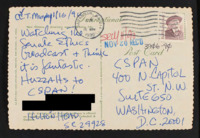 Watching the
Senate Ethics
broadcast & think
it is fantastic.
Huzzahs to
CSPAN!
S.C. 29928
NOV 20 REC'D
CSPAN
400 N Capitol
St. N W
Suite 650
Washington
D.C. 20001